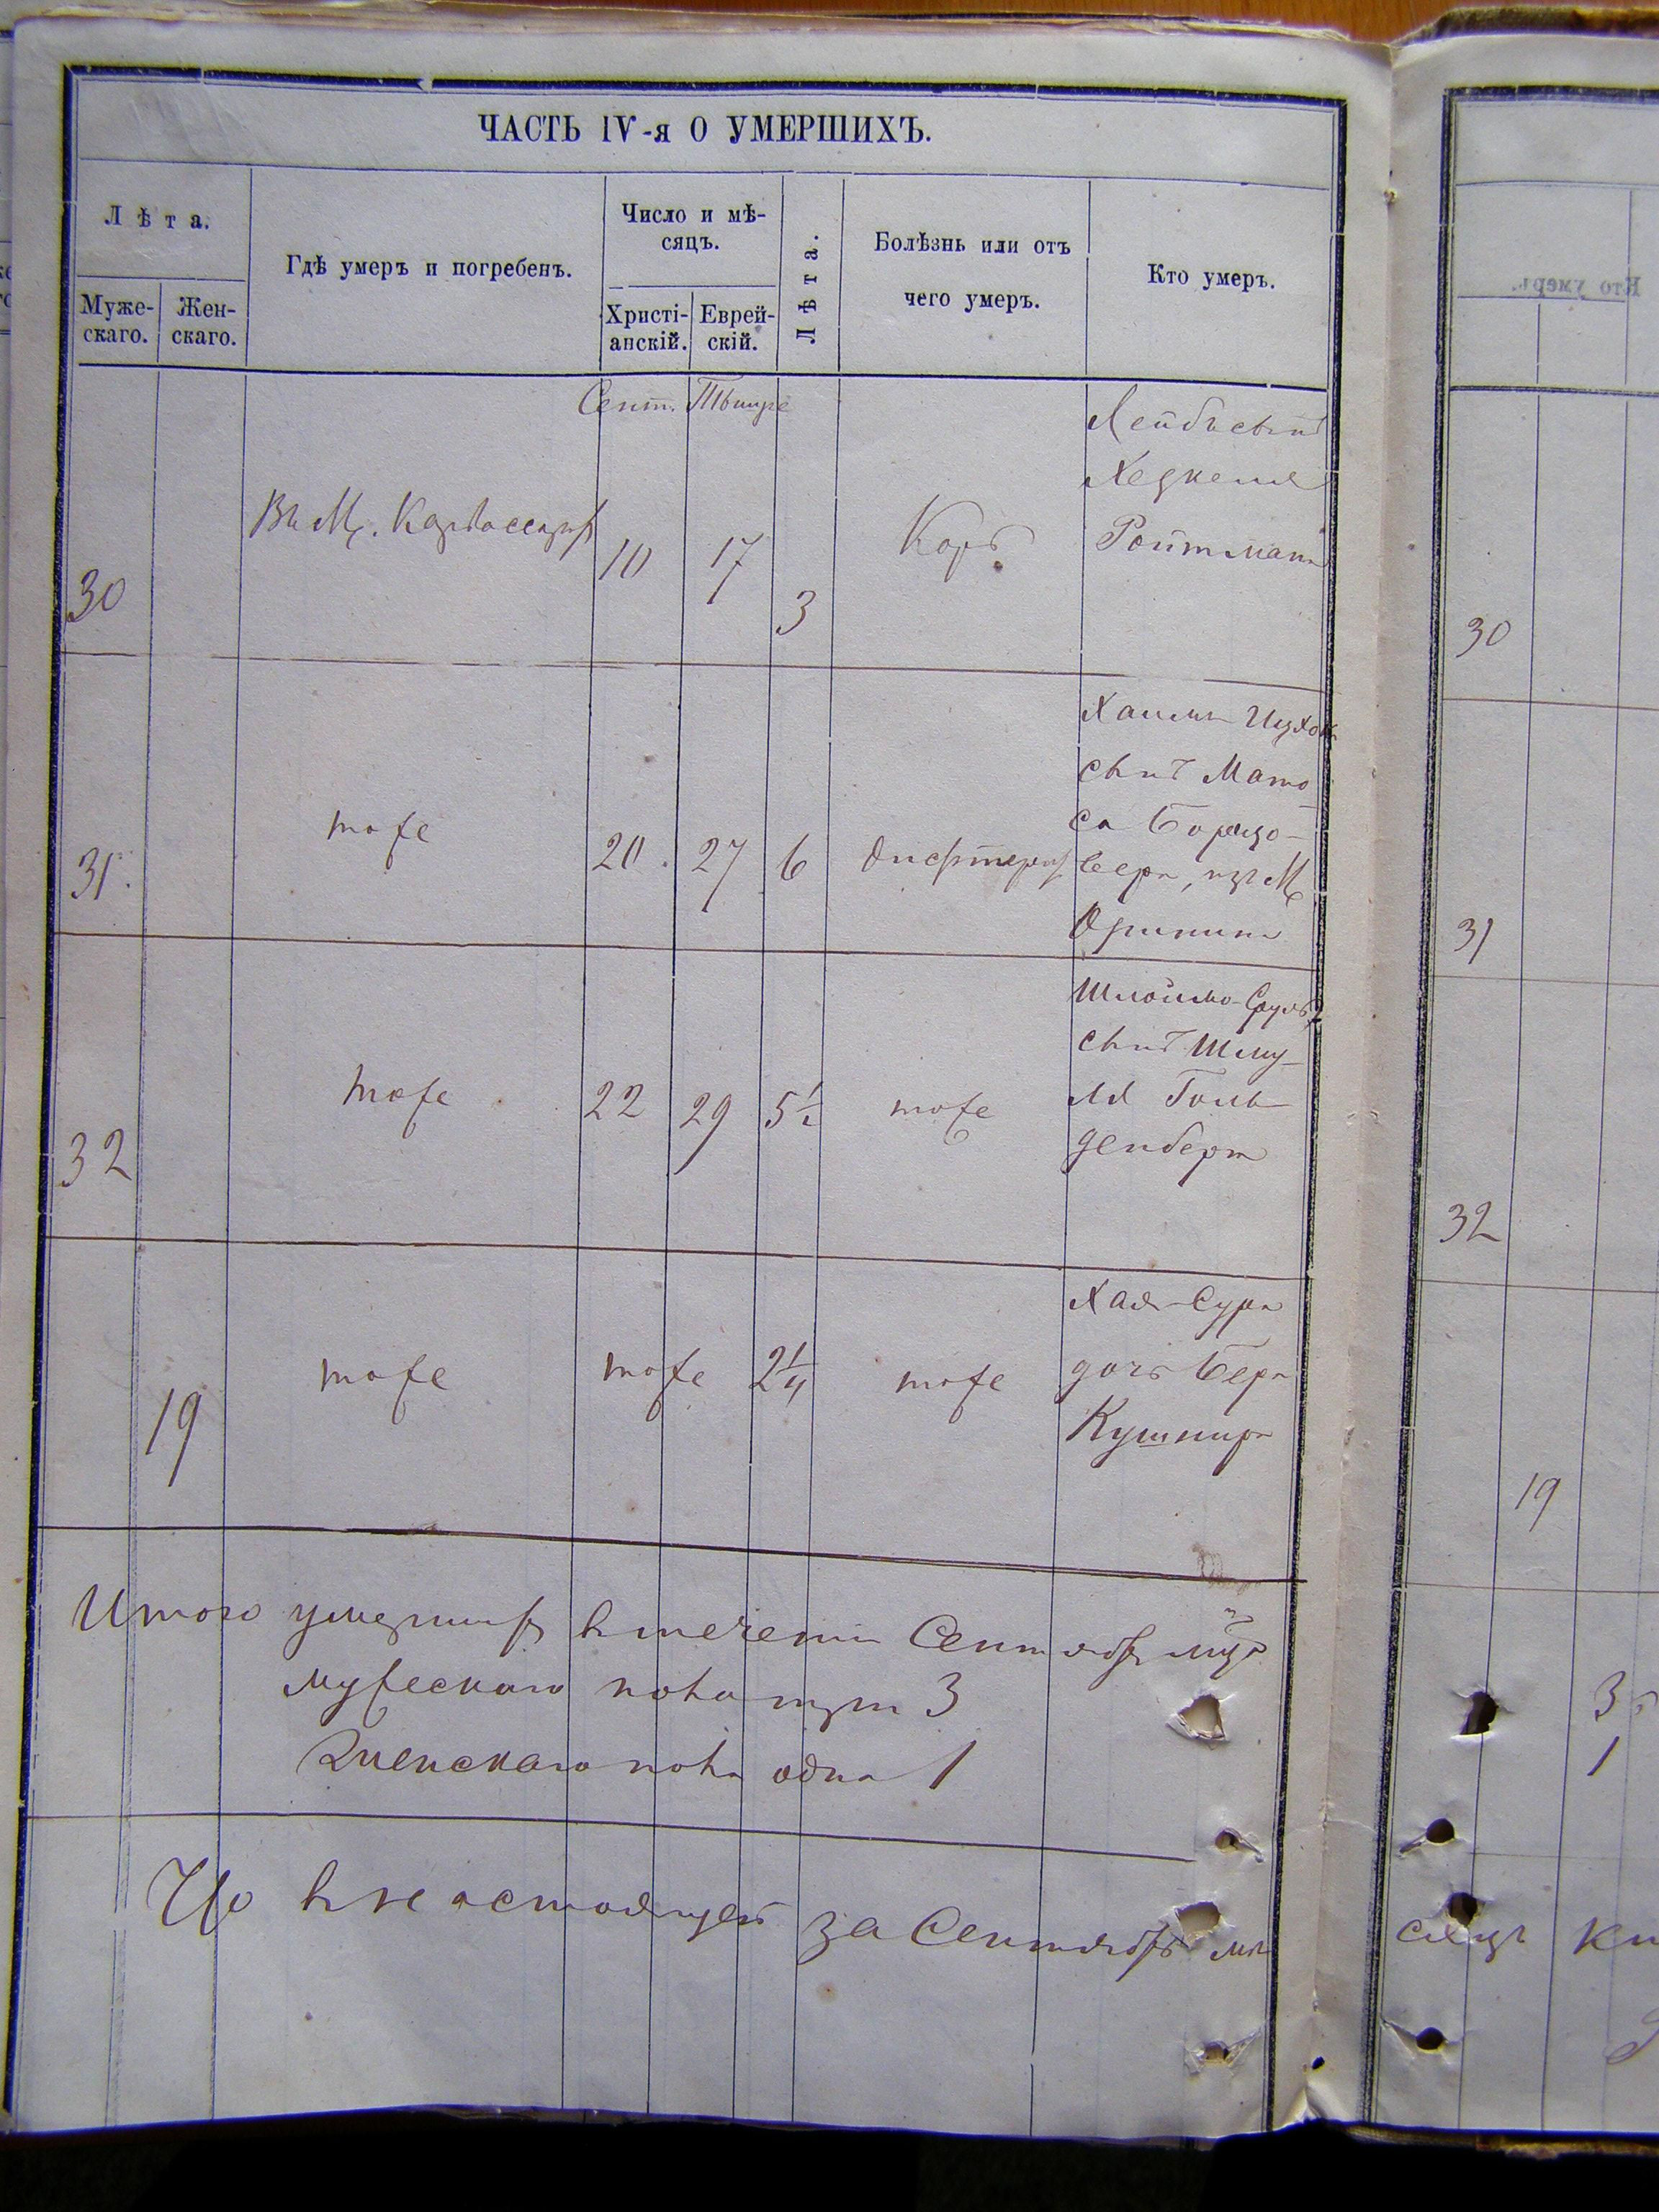 ЧАСТЬ IV-я О УМЕРШИХЪ.
Лѣта.
Муже-
скаго.
Жен-
скаго.
Гдѣ умеръ и погребенъ.
Число и мѣ-
сяцъ.
Христі-
анскій.
Еврей-
скій.
Лѣта.
Болѣзнь или отъ
чего умеръ.
Кто умеръ.
Кто умеръ.
Сент.
30
Въ М. Карвассарах
10
17
3
Корь
Лейбъ сынъ
Хезкеля
Ройтмана
30
31.
тоже
20.
27
6
дифтерит
Хаимъ Ицхок
сынъ Мато-
са
вера, изъ М.
Оринина
31
32
тоже
22
29
5½
тоже
Шлоймо-Сруль
сынъ Шму-
ля Голь-
денберга
32
19
тоже
тоже
2¼
тоже
Хая-Сура
дочь Бера
Кушнира
19
Итого умерших в течении Сентября м-ца
мужескаго пола три 3
женскаго пола одна 1
3
1
Что в настоящей за Сентябрь мѣ
сяцъ